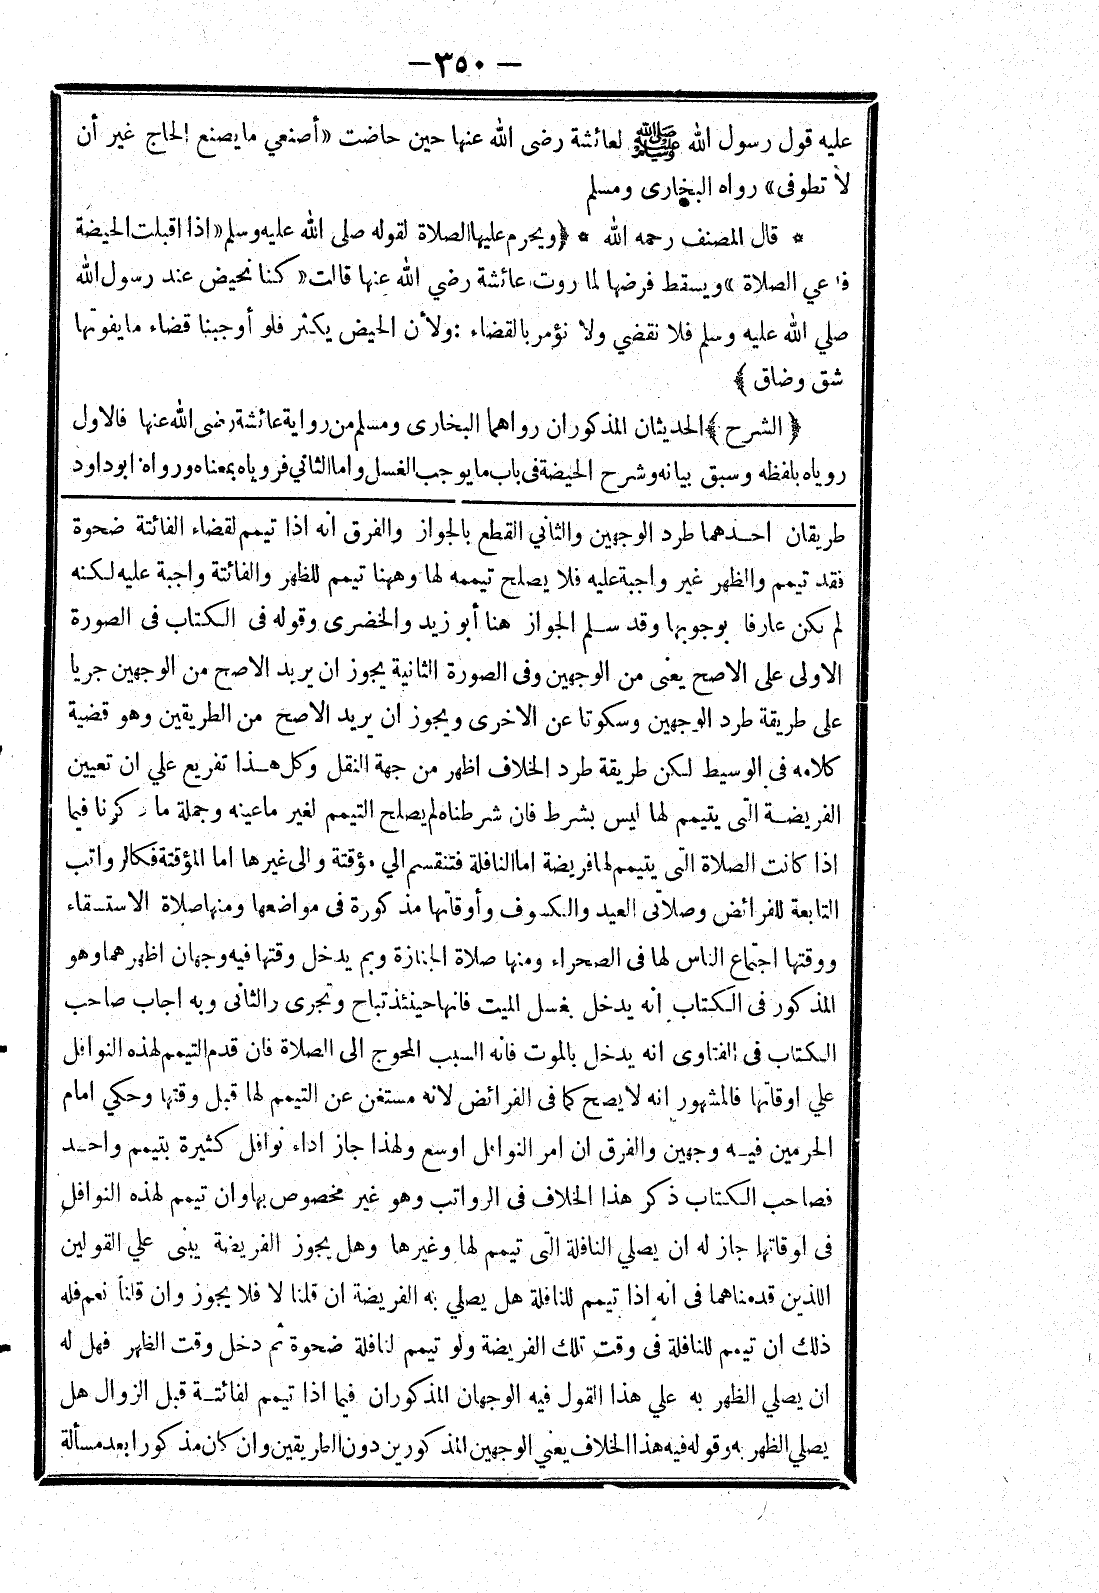 — ٣٥٠ —
عليه قول رسول الله ﷺ لعائشة رضى الله عنها حين حاضت «أصنعي مايصنع الحاج غير أن
لا تطوفى» رواه البخارى ومسلم
* قال المصنف رحمه الله * ﴿ويحرم عليها الصلاة لقوله صلى الله عليه وسلم «اذا اقبلت الحيضة
فدعي الصلاة» ويسقط فرضها لما روت عائشة رضي الله عنها قالت «كنا نحيض عند رسول الله
صلي الله عليه وسلم فلا نقضي ولا نؤمر بالقضاء : ولأن الحيض يكثر فلو أوجبنا قضاء مايفوتها
شق وضاق﴾
﴿الشرح﴾ الحديثان المذكوران رواهما البخارى ومسلم من رواية عائشة رضى الله عنها فالاول
روياه بلفظه وسبق بيانه وشرح الحيضة فى باب مايوجب الغسل واما الثاني فروياه بمعناه ورواه ابو داود
طريقان احدهما طرد الوجهين والثاني القطع بالجواز والفرق انه اذا تيمم لقضاء الفائتة ضحوة
فقد تيمم والظهر غير واجبة عليه فلا يصلح تيممه لها وههنا تيمم للظهر والفائتة واجبة عليه لكنه
لم يكن عارفا بوجوبها وقد سلم الجواز هنا أبو زيد والخضرى وقوله فى الكتاب فى الصورة
الاولى على الاصح يعنى من الوجهين وفى الصورة الثانية يجوز ان يريد الاصح من الوجهين جريا
على طريقة طرد الوجهين وسكوتا عن الاخرى ويجوز ان يريد الاصح من الطريقين وهو قضية
كلامه فى الوسيط لكن طريقة طرد الخلاف اظهر من جهة النقل وكل هذا تفريع علي ان تعيين
الفريضة التى يتيمم لها ليس بشرط فان شرطناه لم يصلح التيمم لغير ماعينه وجملة ماذكرنا فيما
اذا كانت الصلاة التى يتيمم لها فريضة اما النافلة فتنقسم الي مؤقتة والى غيرها اما المؤقتة فكالرواتب
التابعة للفرائض وصلاتى العيد والكسوف وأوقاتها مذكورة فى مواضعها ومنها صلاة الاستسقاء
ووقتها اجتماع الناس لها فى الصحراء ومنها صلاة الجنازة وبم يدخل وقتها فيه وجهان اظهرهما وهو
المذكور فى الكتاب انه يدخل بغسل الميت فانها حينئذ تباح وتجرى والثانى وبه اجاب صاحب
الكتاب فى الفتاوى انه يدخل بالموت فانه السبب المحوج الى الصلاة فان قدم التيمم لهذه النوافل
علي اوقاتها فالمشهور انه لا يصح كما فى الفرائض لانه مستغن عن التيمم لها قبل وقتها وحكي امام
الحرمين فيه وجهين والفرق ان امر النوافل اوسع ولهذا جاز اداء نوافل كثيرة بتيمم واحد
فصاحب الكتاب ذكر هذا الخلاف فى الرواتب وهو غير مخصوص بها وان تيمم لهذه النوافل
فى اوقاتها جاز له ان يصلي النافلة التى تيمم لها وغيرها وهل يجوز الفريضة يبنى علي القولين
اللذين قدمناهما فى انه اذا تيمم للنافلة هل يصلي به الفريضة ان قلنا لا فلا يجوز وان قلنا نعم فله
ذلك ان تيمم للنافلة فى وقت تلك الفريضة ولو تيمم لنافلة ضحوة ثم دخل وقت الظهر فهل له
ان يصلي الظهر به علي هذا القول فيه الوجهان المذكوران فيما اذا تيمم لفائتة قبل الزوال هل
يصلي الظهر به وقوله فيه هذا الخلاف يعني الوجهين المذكورين دون الطريقين وان كان مذكورا بعد مسألة